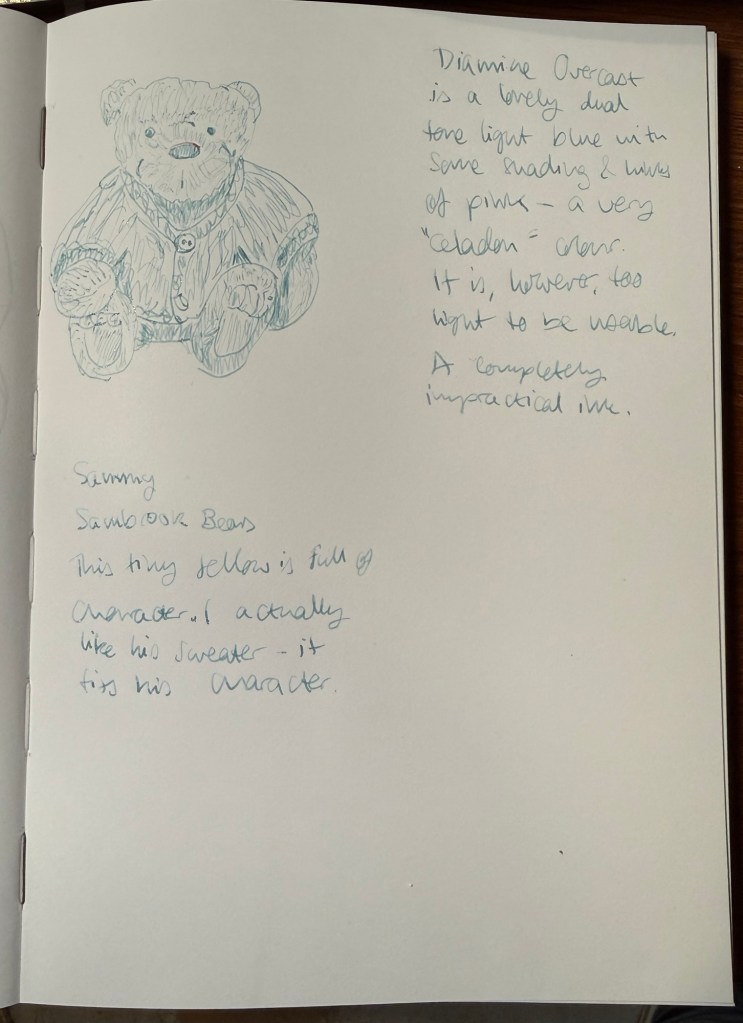 Diamine Overcast
is a lovely dual
tone light blue with
some shading & hints
of pink – a very
"Celadon" colour.
It is, however, too
light to be usable.
A completely
impractical ink.
Sammy
Sambrook Bears
This tiny fellow is full of
character. I actually
like his sweater - it
fits his character.